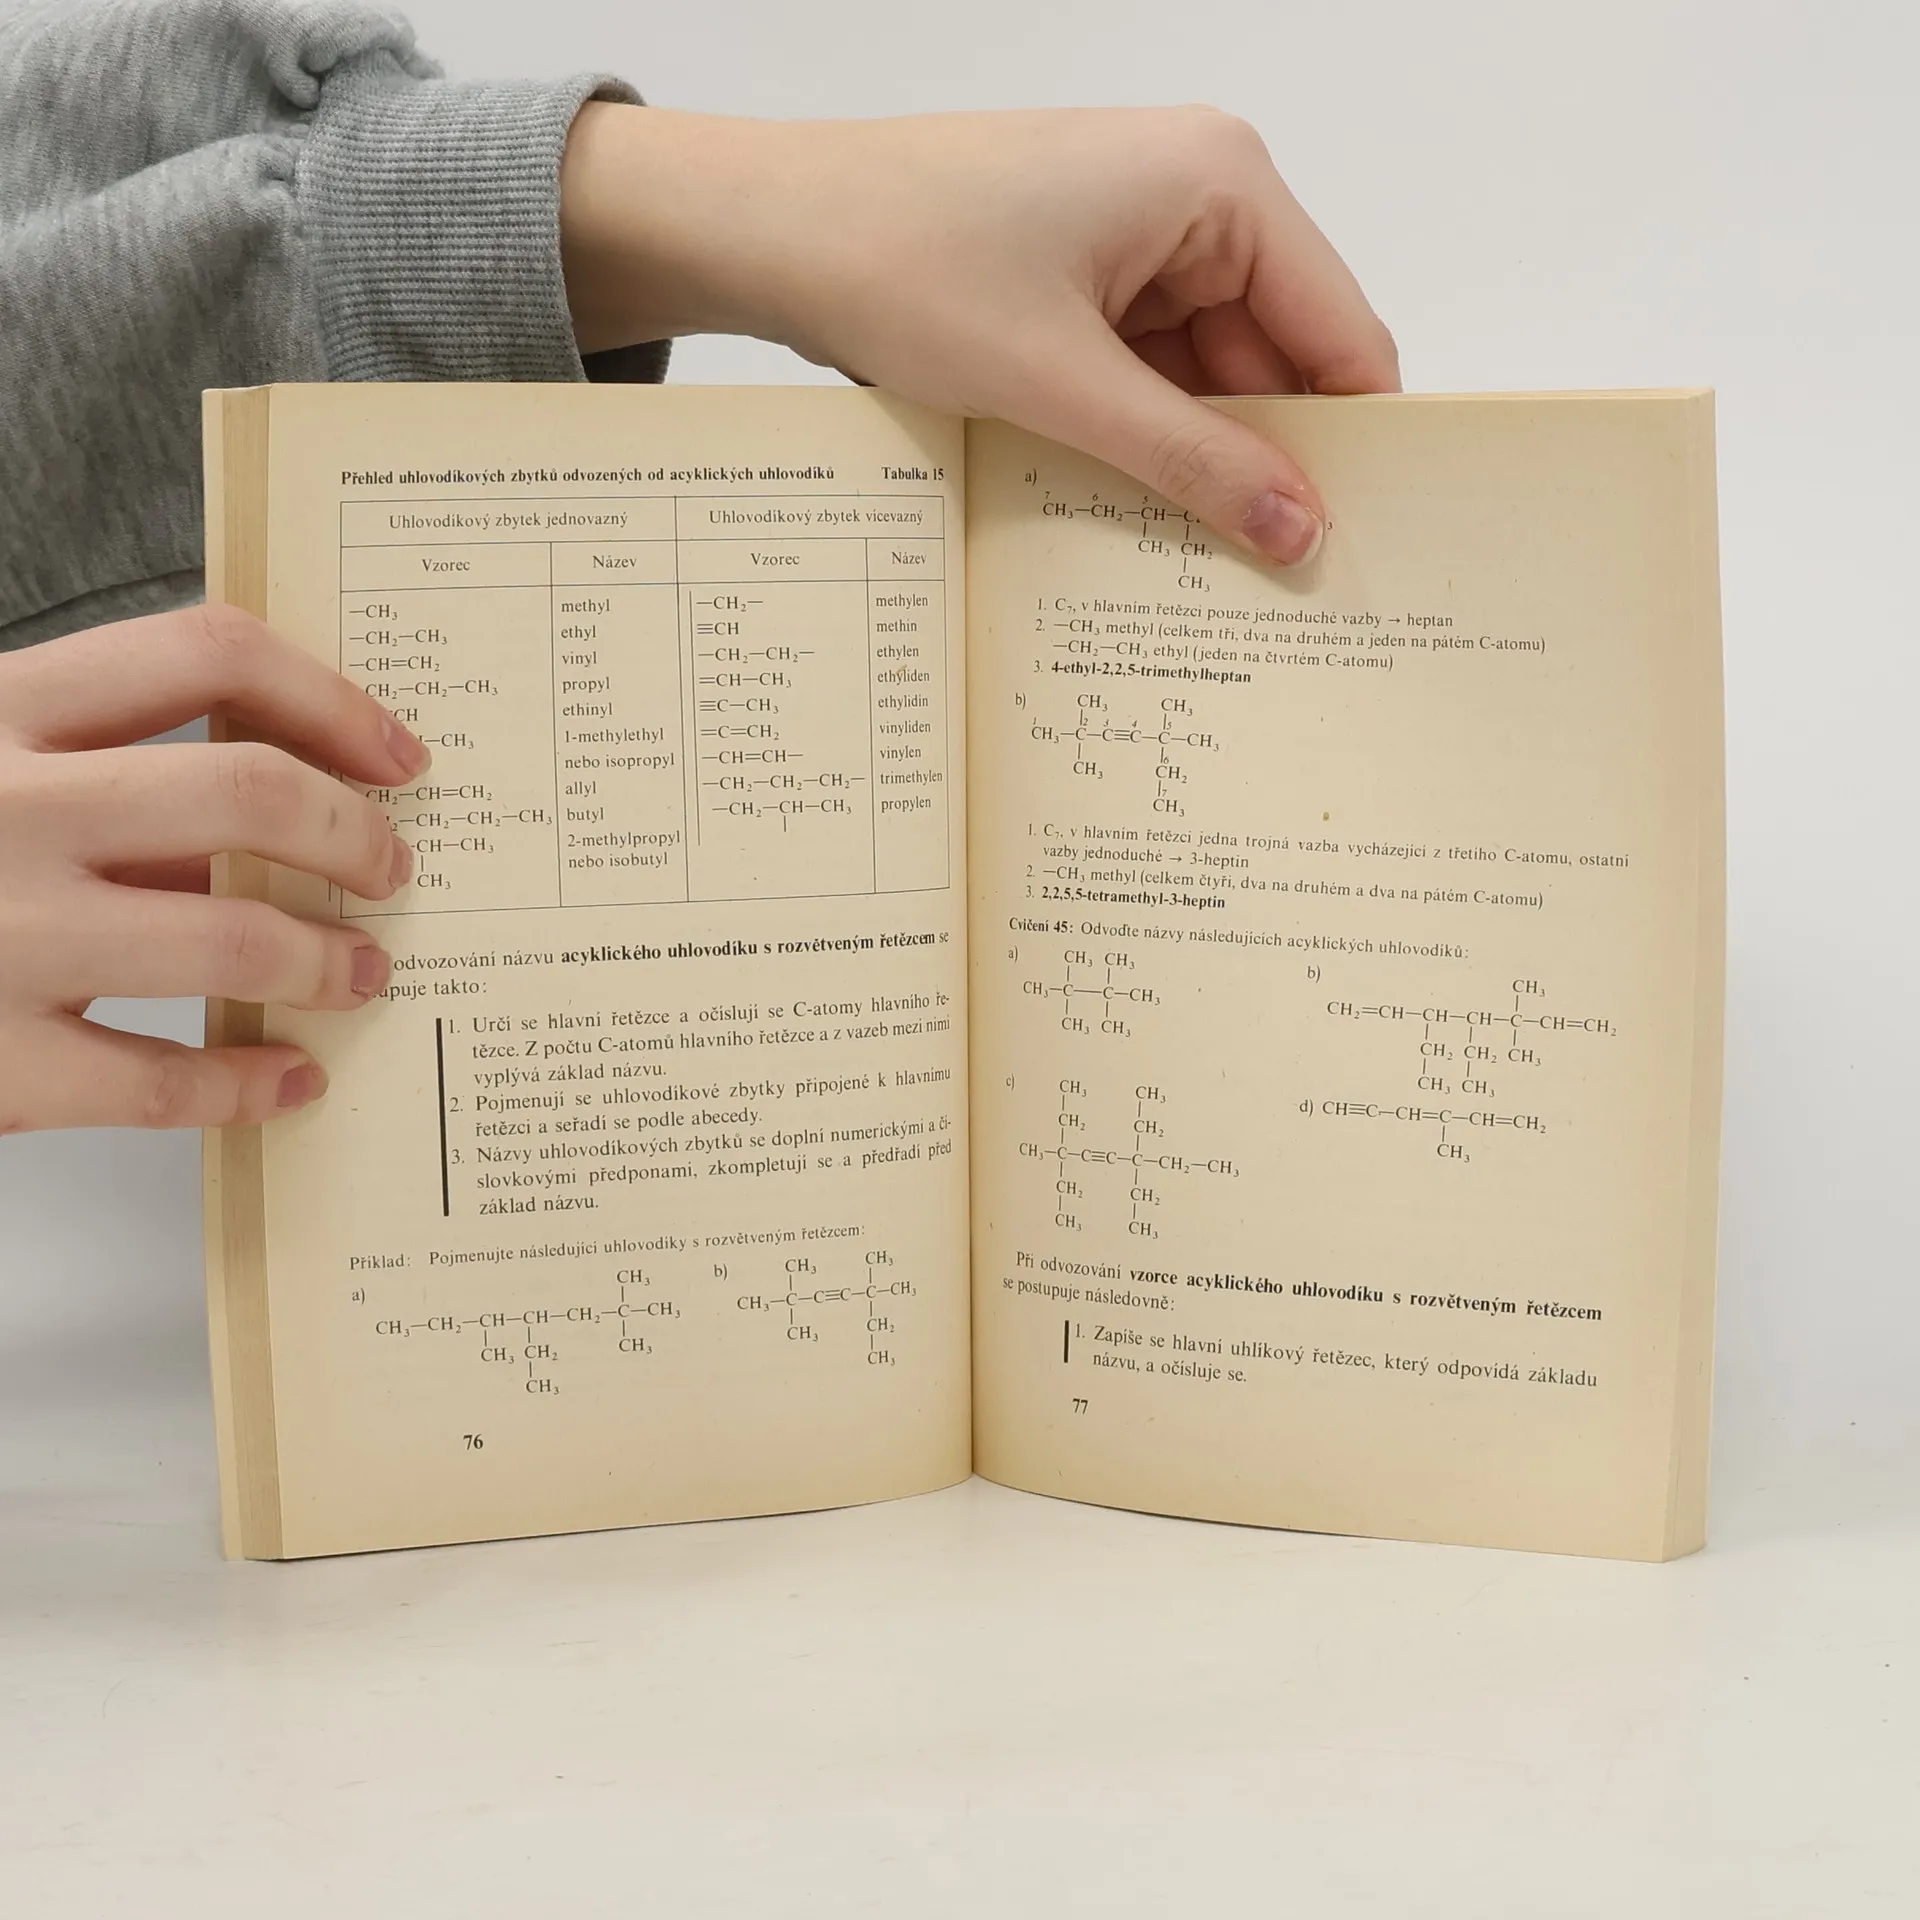 Přehled uhlovodíkových zbytků odvozených od acyklických uhlovodíků Tabulka 15
Uhlovodíkový zbytek jednovazný Uhlovodíkový zbytek vícevazný
Vzorec Název Vzorec Název
—CH₃ methyl —CH₂— methylen
—CH₂—CH₃ ethyl ≡CH methin
—CH=CH₂ vinyl —CH₂—CH₂— ethylen
CH₂—CH₂—CH₃ propyl =CH—CH₃ ethyliden
CH ethinyl ≡C—CH₃ ethylidin
—CH₃ 1-methylethyl =C=CH₂ vinyliden
nebo isopropyl —CH=CH— vinylen
CH₂—CH=CH₂ allyl —CH₂—CH₂—CH₂— trimethylen
—CH₂—CH₂—CH₃ butyl —CH₂—CH—CH₃ propylen
—CH—CH₃ 2-methylpropyl
nebo isobutyl
CH₃
odvozování názvu acyklického uhlovodíku s rozvětveným řetězcem se
takto:
1. Určí se hlavní řetězce a očíslují se C-atomy hlavního ře-
tězce. Z počtu C-atomů hlavního řetězce a z vazeb mezi nimi
vyplývá základ názvu.
2. Pojmenují se uhlovodíkové zbytky připojené k hlavnímu
řetězci a seřadí se podle abecedy.
3. Názvy uhlovodíkových zbytků se doplní numerickými a čí-
slovkovými předponami, zkompletují se a předřadí před
základ názvu.
Příklad: Pojmenujte následující uhlovodíky s rozvětveným řetězcem:
a)
CH₃
CH₃—CH₂—CH—CH—CH₂—C—CH₃
CH₃ CH₂ CH₃
CH₃
b)
CH₃ CH₃
CH₃—C—C≡C—C—CH₃
CH₃ CH₂
CH₃
76
a)
7 6 5
CH₃—CH₂—CH—
CH₃ CH₂
CH₃
1. C₇, v hlavním řetězci pouze jednoduché vazby → heptan
2. —CH₃ methyl (celkem tři, dva na druhém a jeden na pátém C-atomu)
—CH₂—CH₃ ethyl (jeden na čtvrtém C-atomu)
3. 4-ethyl-2,2,5-trimethylheptan
b)
CH₃ CH₃
1 2 3 4 5
CH₃—C—C≡C—C—CH₃
6
CH₃ CH₂
7
CH₃
1. C₇, v hlavním řetězci jedna trojná vazba vycházející z třetího C-atomu, ostatní
vazby jednoduché → 3-heptin
2. —CH₃ methyl (celkem čtyři, dva na druhém a dva na pátém C-atomu)
3. 2,2,5,5-tetramethyl-3-heptin
Cvičení 45: Odvoďte názvy následujících acyklických uhlovodíků:
a)
CH₃ CH₃
CH₃—C—C—CH₃
CH₃ CH₃
b)
CH₃
CH₂=CH—CH—CH—C—CH=CH₂
CH₂ CH₂ CH₃
CH₃ CH₃
c)
CH₃ CH₃
CH₂ CH₂
CH₃—C—C≡C—C—CH₂—CH₃
CH₂ CH₂
CH₃ CH₃
d) CH≡C—CH=C—CH=CH₂
CH₃
Při odvozování vzorce acyklického uhlovodíku s rozvětveným řetězcem
se postupuje následovně:
1. Zapíše se hlavní uhlíkový řetězec, který odpovídá základu
názvu, a očísluje se.
77